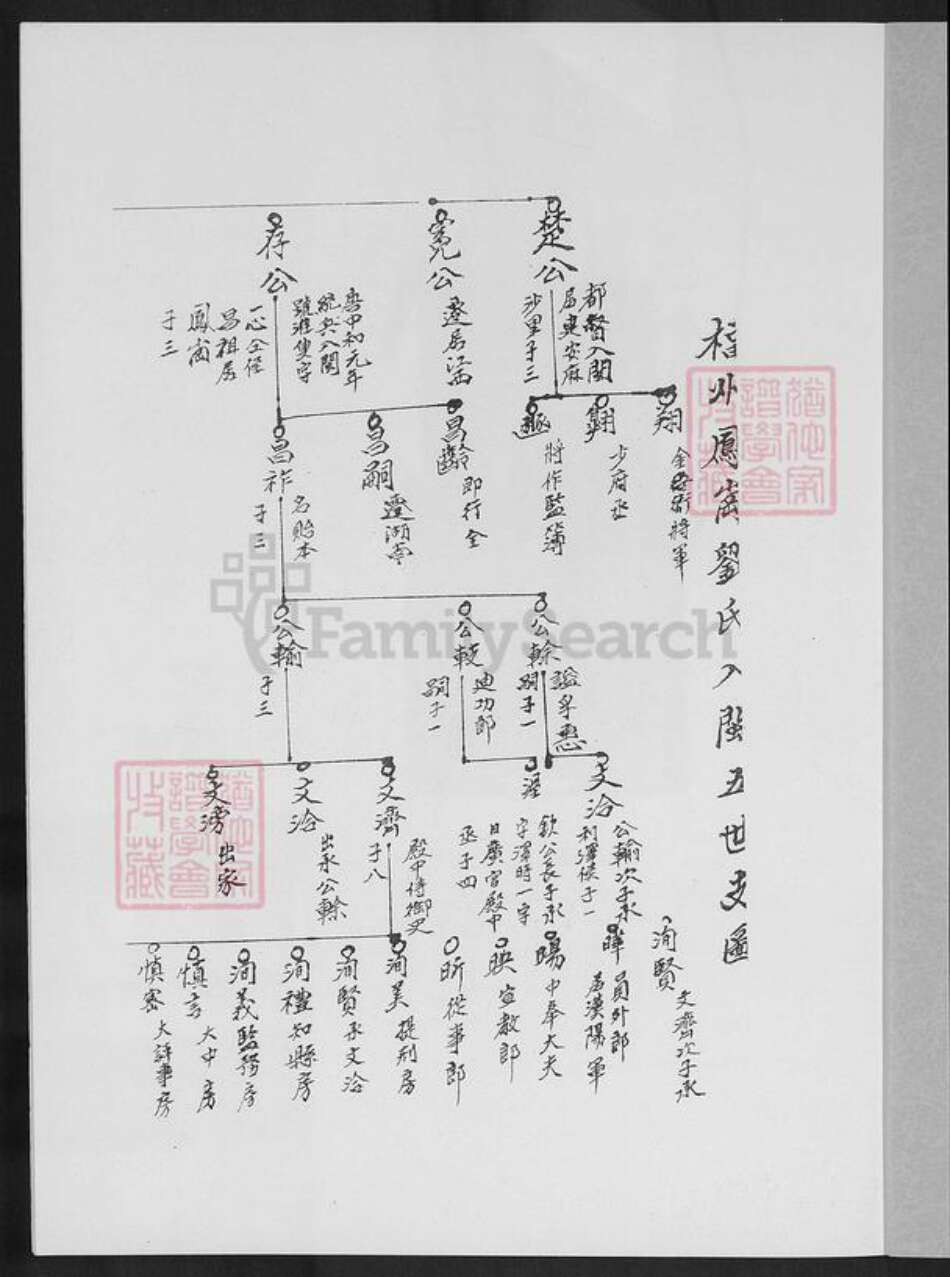 楷外鳳崗劉氏入閩五世支圖
楚公
都督入閩
居建安麻
沙里子三
寬公
遷居江西
存公
唐中和元年
統兵入閩
號淮隻字
一心仝侄
昌祖居
鳳崗
子三
翔
金吾衛將軍
翱
少府丞
將作監簿
昌齡
即行全
昌嗣
遷湖雲
昌祚
名貽本
子三
公餘
謚孚惠
嗣子一
公較
迪功郎
嗣子一
公輸
子三
文洽
公輸次子承
利澤侯子一
欽公長子承
字濱時一字
日廣官殿中
丞子四
文濟
殿中侍御史
子八
文洽
出承公餘
文滂
出家
洵賢
文濟次子承
暐員外郎
居漢陽軍
暘中奉大夫
映宣教郎
昕從事郎
洵美提刑房
洵賢承文洽
洵禮知縣房
洵義監務房
慎言大中房
慎密大評事房
譜學會
收藏
譜學會
收藏
FamilySearch